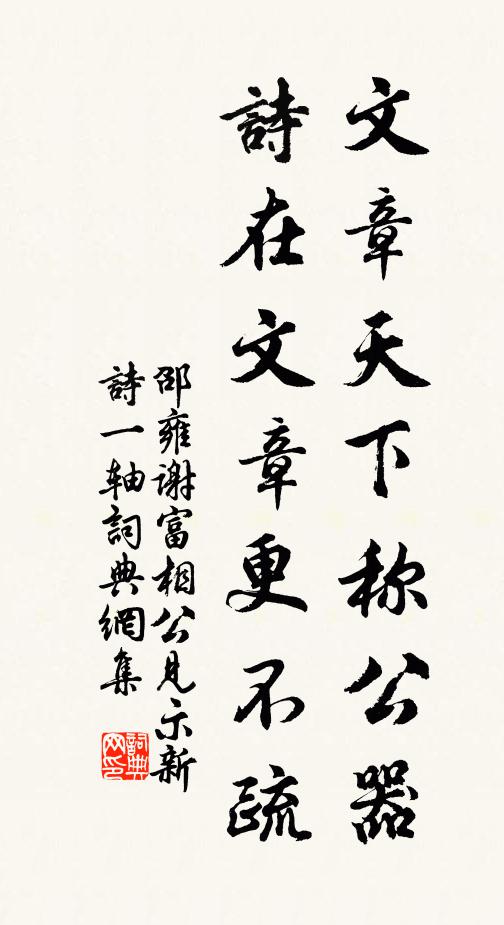 文章天下称公器
詩在文章更不疏
邵雍谢富相公見示新
詩一轴詞典網集
詞典
网印